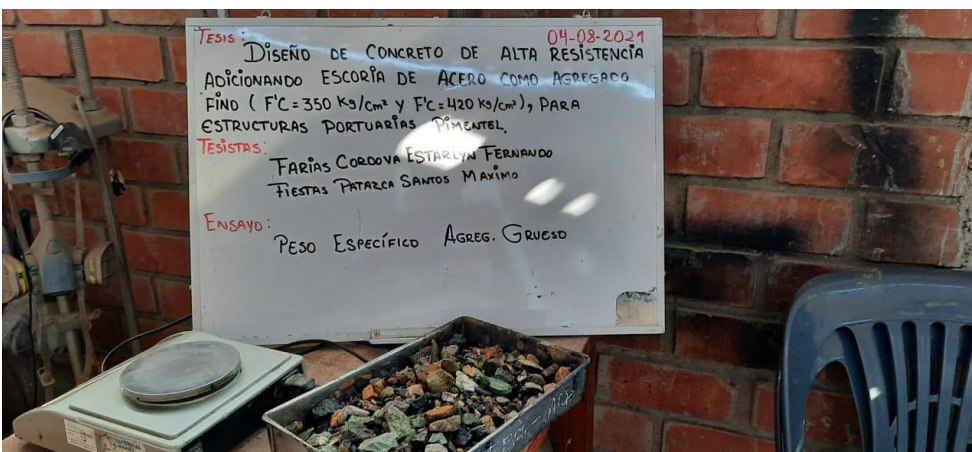 TESIS: 04-08-2021
DISEÑO DE CONCRETO DE ALTA RESISTENCIA
ADICIONANDO ESCORIA DE ACERO COMO AGREGADO
FINO ( F'C=350 Kg/cm² Y F'C=420 Kg/cm²), PARA
ESTRUCTURAS PORTUARIAS PIMENTEL.
TESISTAS:
FARIAS CORDOVA ESTARLYN FERNANDO
FIESTAS PATAZCA SANTOS MAXIMO
ENSAYO:
PESO ESPECÍFICO AGREG. GRUESO